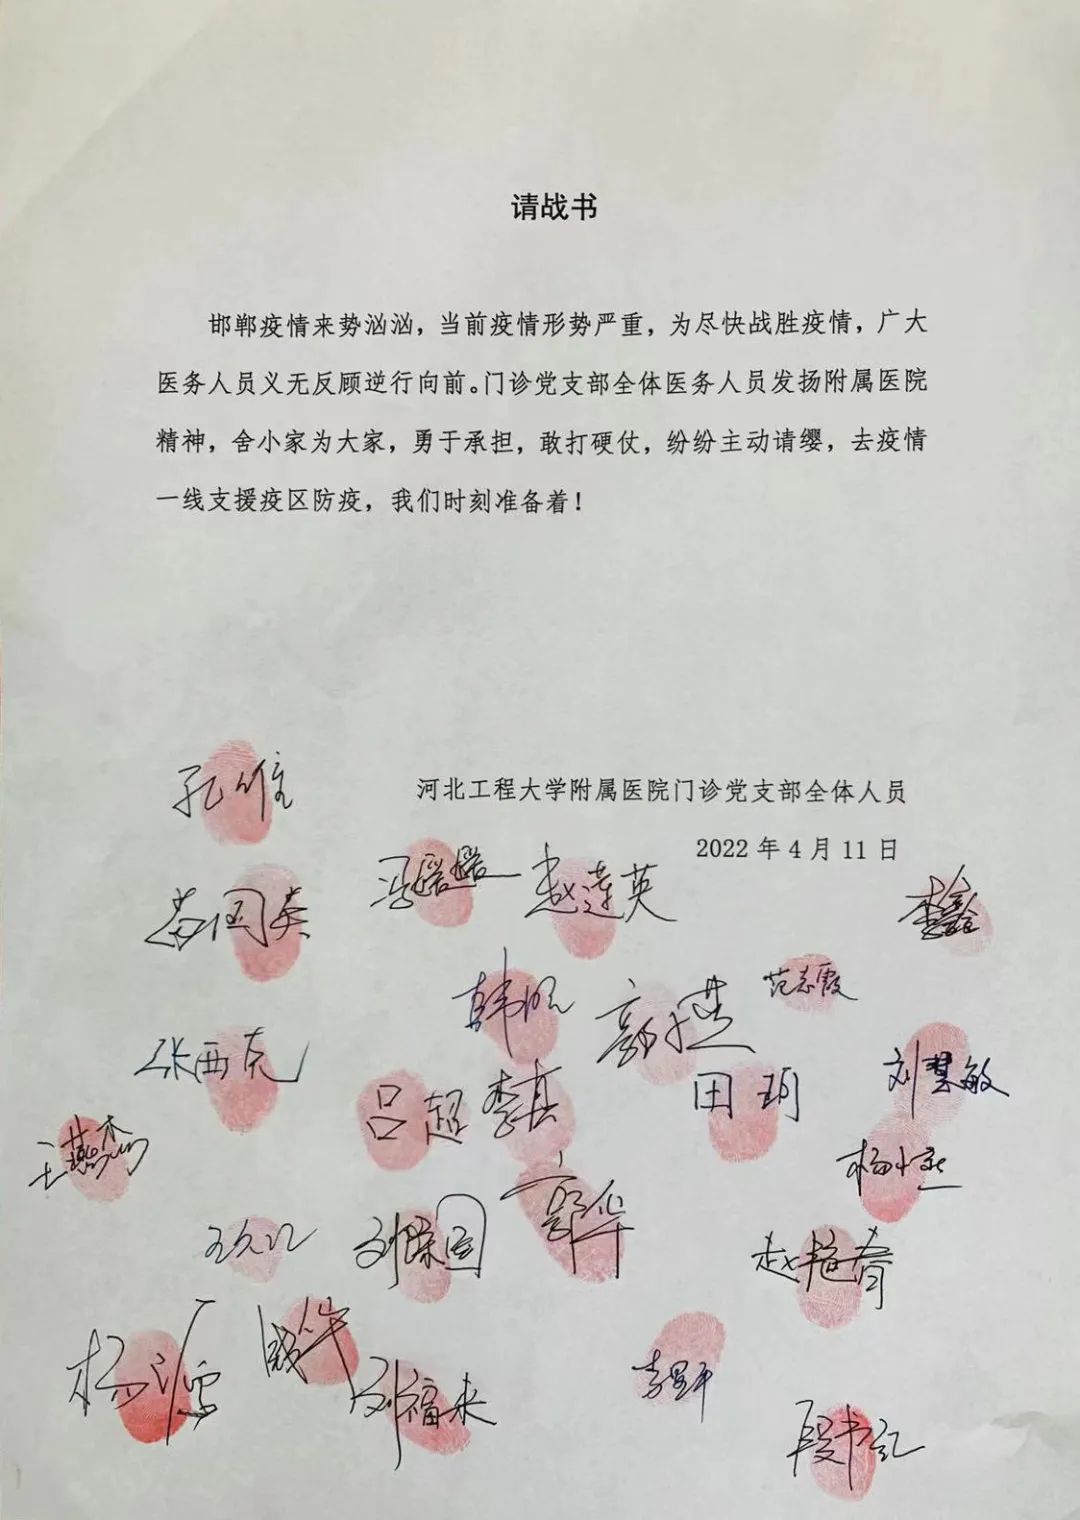 请战书
邯郸疫情来势汹汹，当前疫情形势严重，为尽快战胜疫情，广大
医务人员义无反顾逆行向前。门诊党支部全体医务人员发扬附属医院
精神，舍小家为大家，勇于承担，敢打硬仗，纷纷主动请缨，去疫情
一线支援疫区防疫，我们时刻准备着！
孔维
河北工程大学附属医院门诊党支部全体人员
2022年4月11日
冯
赵莲英
李鑫
苗国英
韩
郭燕
范志霞
张西克
吕超
李真
田玥
刘慧敏
王燕杰
杨
刘
郭华
赵艳春
杨
华
刘福来
李
段书红